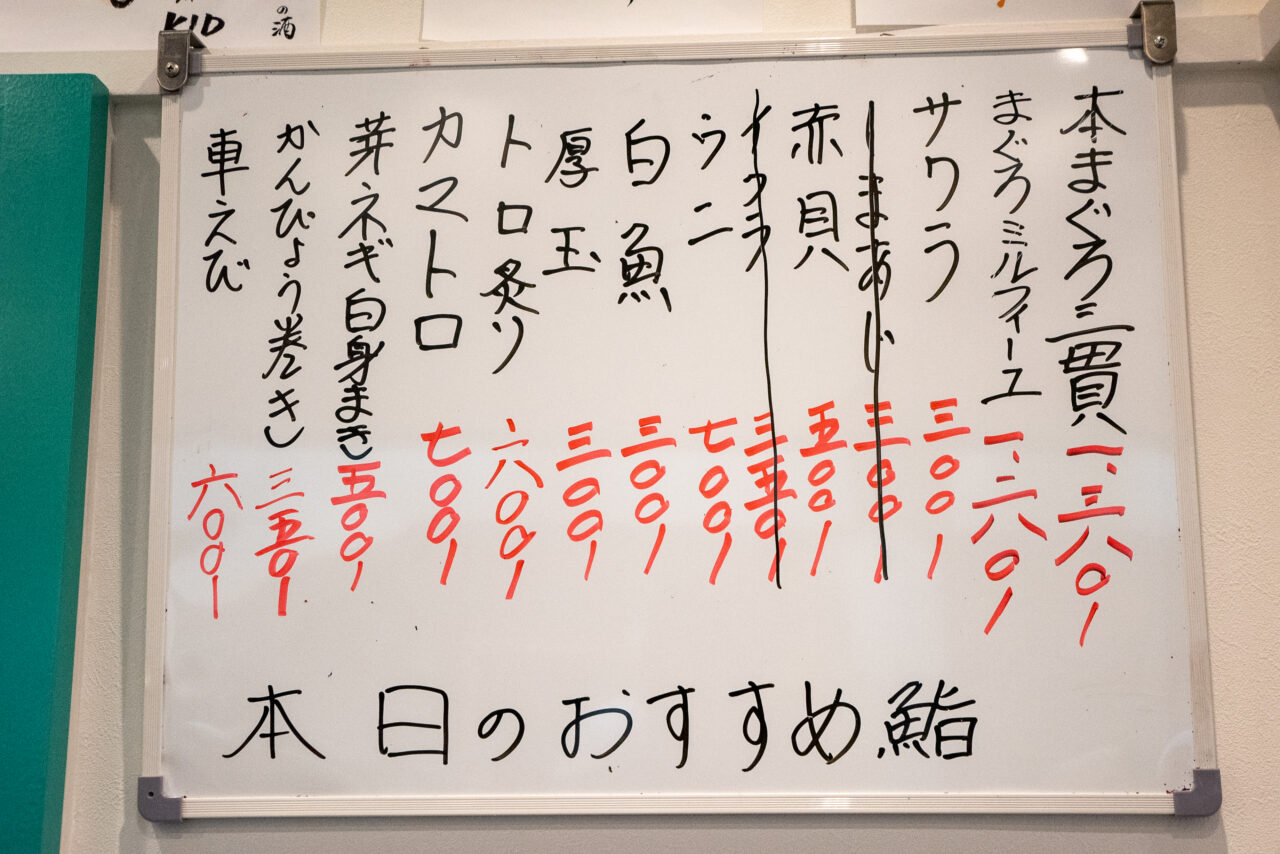 KID
の酒
本まぐろ三貫 一、三八〇ー
まぐろミルフィーユ 一、二八〇ー
サワラ 三〇〇ー
しまあじ 三〇〇ー
赤貝 五〇〇ー
イクラ 三五〇ー
ウニ 七〇〇ー
白魚 三〇〇ー
厚玉 三〇〇ー
トロ炙り 六〇〇ー
カマトロ 七〇〇ー
芽ネギ白身まき 五〇〇ー
かんぴょう巻き 三五〇ー
車えび 六〇〇ー
本日のおすすめ鮨